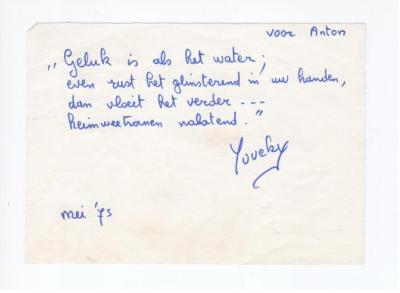 voor Anton
„Geluk is als het water;
even rust het glinsterend in uw handen,
dan vloeit het verder ---
heimweetranen nalatend."
mei '75